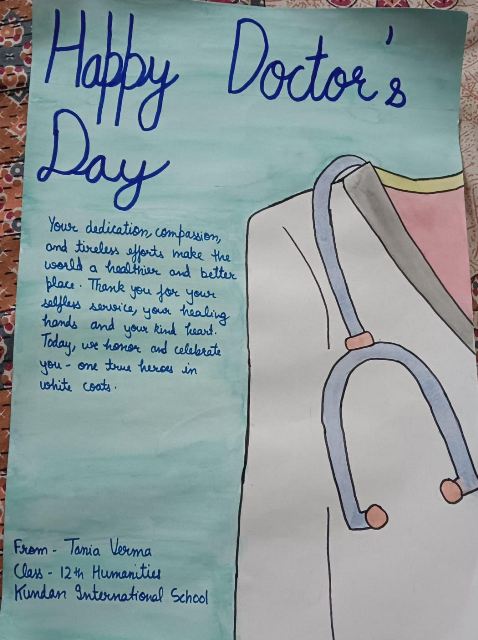 Happy Doctor's
Day
Your dedication, compassion,
and tireless efforts make the
world a healthier and better
place. Thank you for your
selfless service, your healing
hands and your kind heart.
Today, we honor and celebrate
you - one true heroes in
white coats.
From - Tania Verma
Class - 12th Humanities
Kundan International School